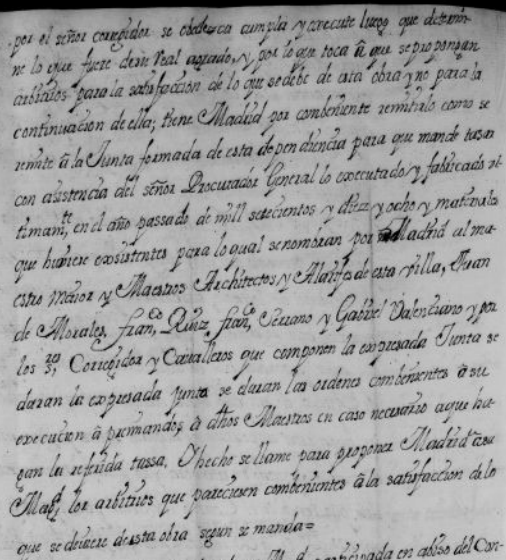 por el señor corregidor se obedezca cumpla y execute luego que determi-
ne lo que fuere de su Real agrado, y por lo que toca â que se propongan
arbitrios para la satisfaccion de lo que se debe de esta obra y no para la
continuacion de ella; tiene Madrid por combeniente remitirlo como se
remite â la Junta formada de esta dependiencia para que mande tasar
con asistencia del señor Procurador General lo executado y fabricado ul-
timam.te en el año passado de mill setecientos y diez y ocho y materiales
que huviere exsistentes para lo qual se nombran por Madrid al ma-
estro mayor y Maestros Architectos y Alarifes de esta villa, Juan
de Morales, Fran.co Ruiz, Fran.co Serrano y Gabriel Valenciano y por
los s.res Corregidor y Cavalleros que componen la expresada Junta se
daran la expresada junta se daran las ordenes combenientes â su
execucion â premiando, â dhos Maestros en caso necesario a que ha-
gan la referida tassa, y hecho se llame para proponer Madrid â su
Mag.d los arbitrios que pareciesen combenientes â la satisfaccion de lo
que se deviere de esta obra segun se manda=
participada en abiso del Con-